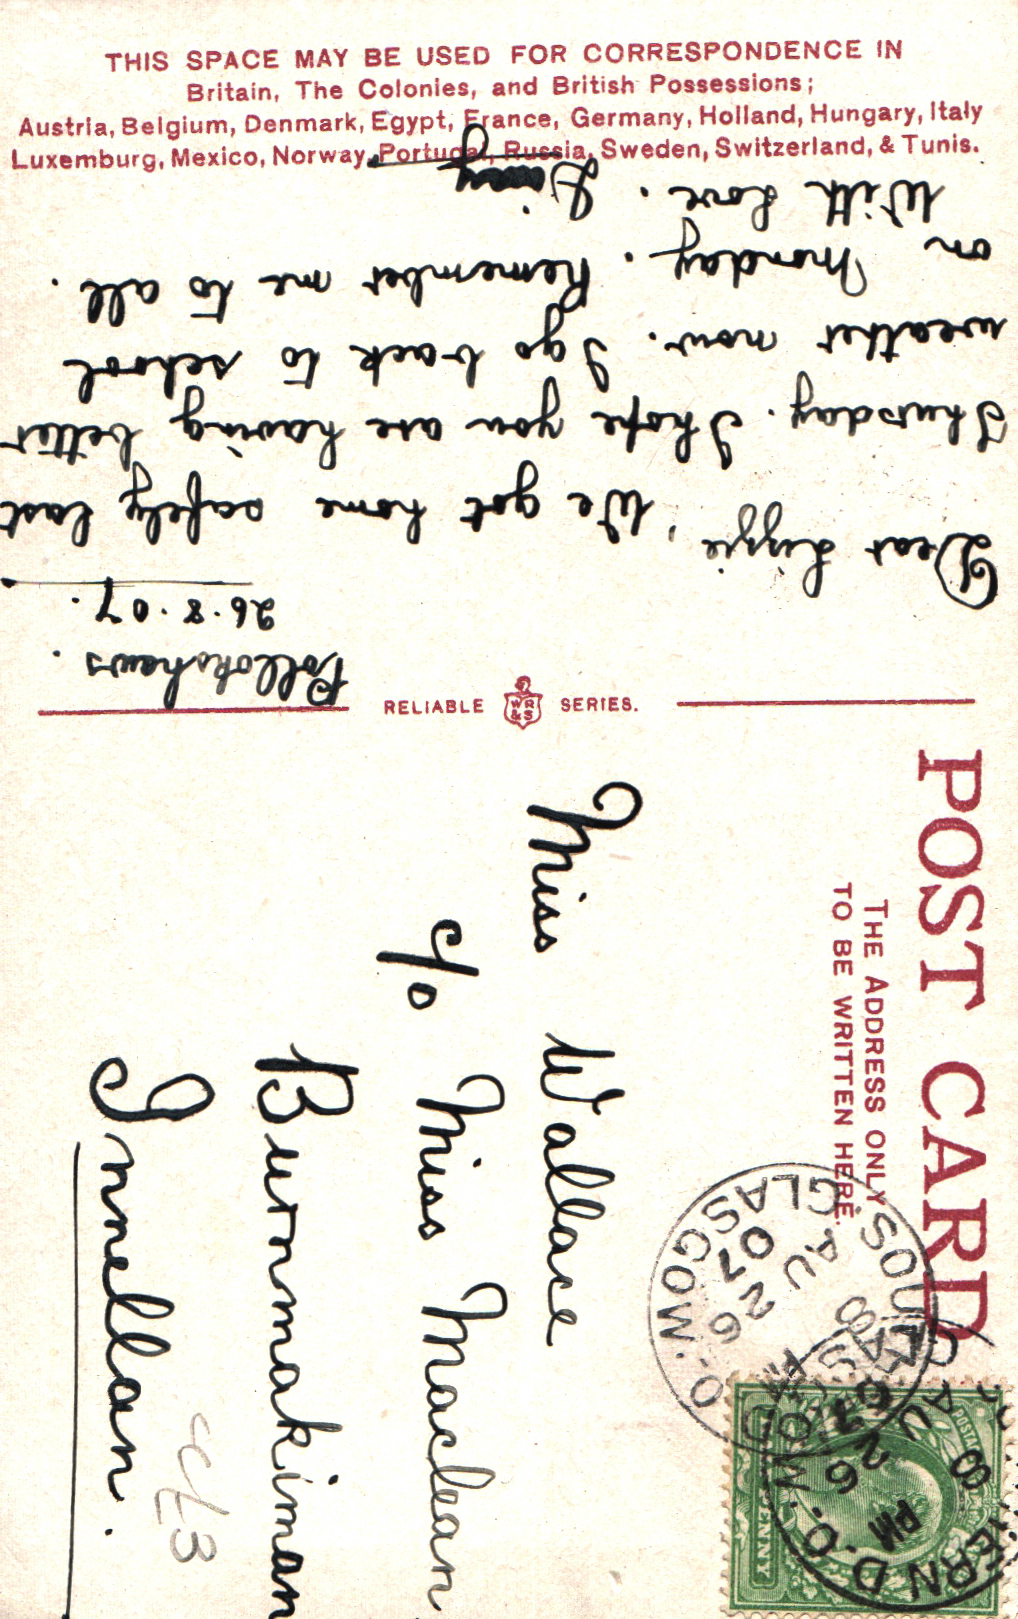 THIS SPACE MAY BE USED FOR CORRESPONDENCE IN
Britain, The Colonies, and British Possessions;
Austria, Belgium, Denmark, Egypt, France, Germany, Holland, Hungary, Italy
Luxemburg, Mexico, Norway, Portugal, Russia, Sweden, Switzerland, & Tunis.
Pollokshaws.
26.8.07.
Dear Lizzie, We got home safely last
Thursday. I hope you are having better
weather now. I go back to school
on Monday. Remember me to all.
With love.
RELIABLE WR&S SERIES.
POST CARD
THE ADDRESS ONLY
TO BE WRITTEN HERE.
Miss Wallace
c/o Miss Maclean
Burnmakiman
Innellan.
GLASGOW
AU 26
07
8 PM
AU 26
07